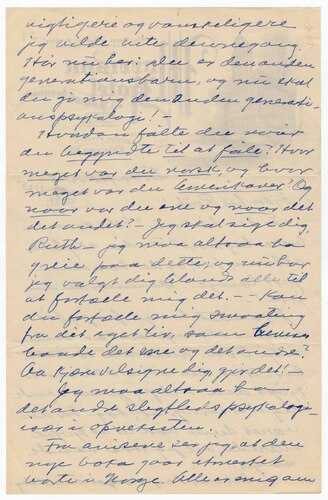 vigtigere og vanskeligere
jeg vilde vite denne gang.
Hør nu her: du er den anden
generationsbarn, og nu skal
du gi mig den anden generati-
onspsykologi! –
Hvordan følte du naar
du begyndte til at føle? Hvor
meget var du norsk, og hvor
meget var du Amerikaner? Og
naar var du ene og naar det
det andet? – Jeg skal sige dig,
Ruth – jeg maa altsaa ha
greie paa dette, og nu har
jeg valgt dig blandt alle til
at fortælle mig det. – Kan
du fortælle mig smaating
fra dit eget liv, som beviser
baade det ene og det andre?
Aa kjære velsignede dig, gjør det! –
Jeg maa altsaa ha
det andre slegtleds psykologi
især i opveksten.
Fra avisene ser jeg, at den
nye boka faar utmerket
borte i Norge. Alle er enig om